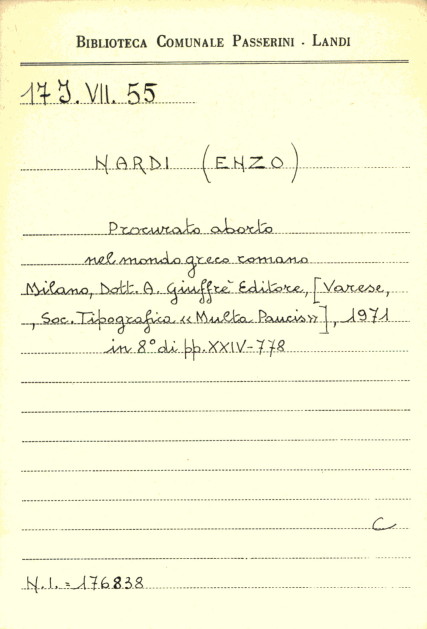 BIBLIOTECA COMUNALE PASSERINI - LANDI
17 J. VII. 55
NARDI (ENZO)
Procurato aborto
nel mondo greco romano
Milano, Dott. A. Giuffrè Editore, [Varese,
, Soc. Tipografica «Multa Paucis»], 1971
in 8° di pp. XXIV-778
C
N.I. = 176838